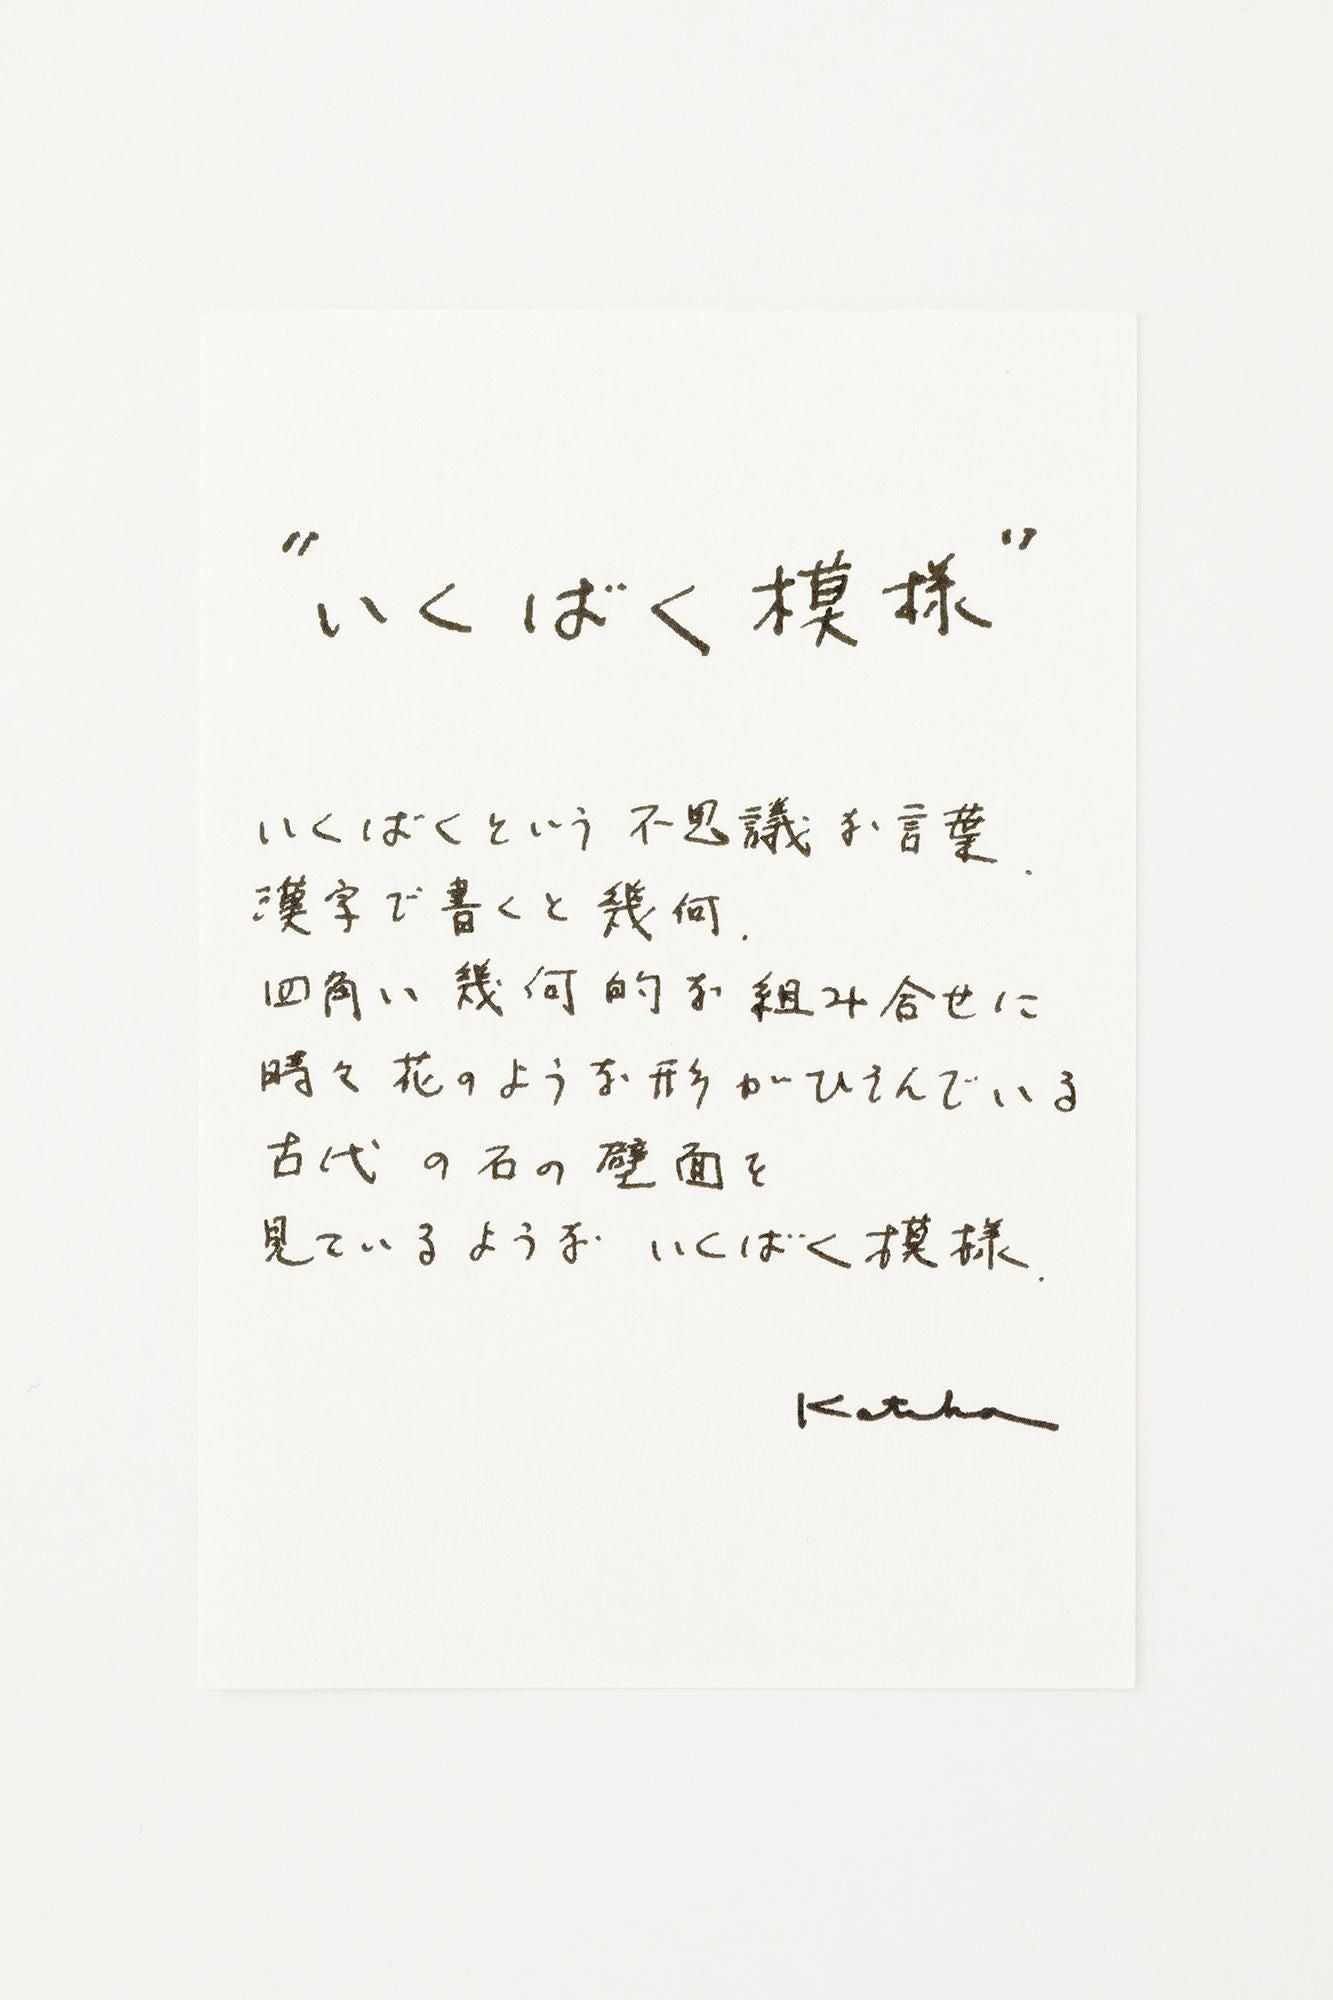 "いくばく模様"
いくばくという不思議な言葉.
漢字で書くと幾何.
四角い幾何的な組み合せに
時々花のような形がひそんでいる
古代の石の壁面を
見ているような いくばく模様.